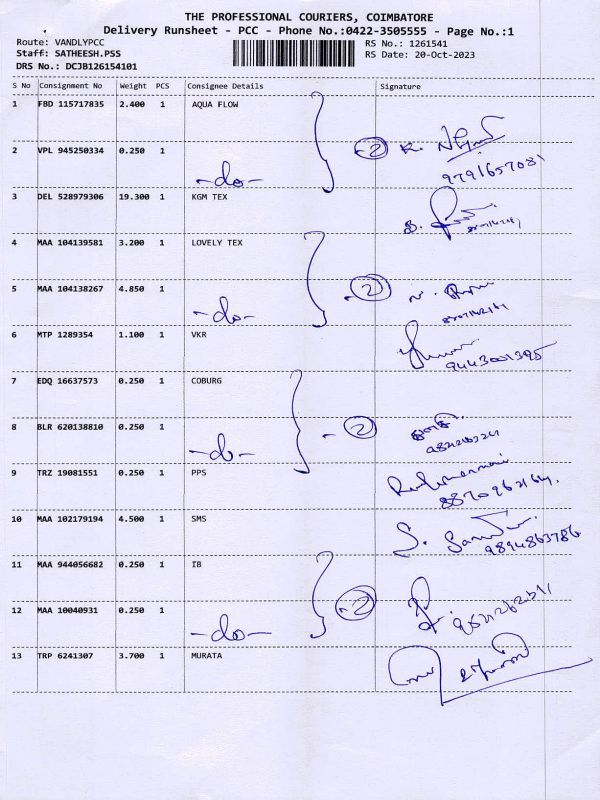 THE PROFESSIONAL COURIERS, COIMBATORE
Delivery Runsheet - PCC - Phone No.:0422-3505555 - Page No.:1
Route: VANDLYPCC RS No.: 1261541
Staff: SATHEESH.PSS RS Date: 20-Oct-2023
DRS No.: DCJB126154101
S No Consignment No Weight PCS Consignee Details Signature
1 FBD 115717835 2.400 1 AQUA FLOW
2 VPL 945250334 0.250 1 -do- -2 K.
9791657081
3 DEL 528979306 19.300 1 KGM TEX
4 MAA 104139581 3.200 1 LOVELY TEX
5 MAA 104138267 4.850 1 -do- -2
6 MTP 1289354 1.100 1 VKR
9443001395
7 EDQ 16637573 0.250 1 COBURG
8 BLR 620138810 0.250 1 -do- -2
9 TRZ 19081551 0.250 1 PPS
10 MAA 102179194 4.500 1 SMS S.
9894863786
11 MAA 944056682 0.250 1 IB
12 MAA 10040931 0.250 1 -do- -2
13 TRP 6241307 3.700 1 MURATA